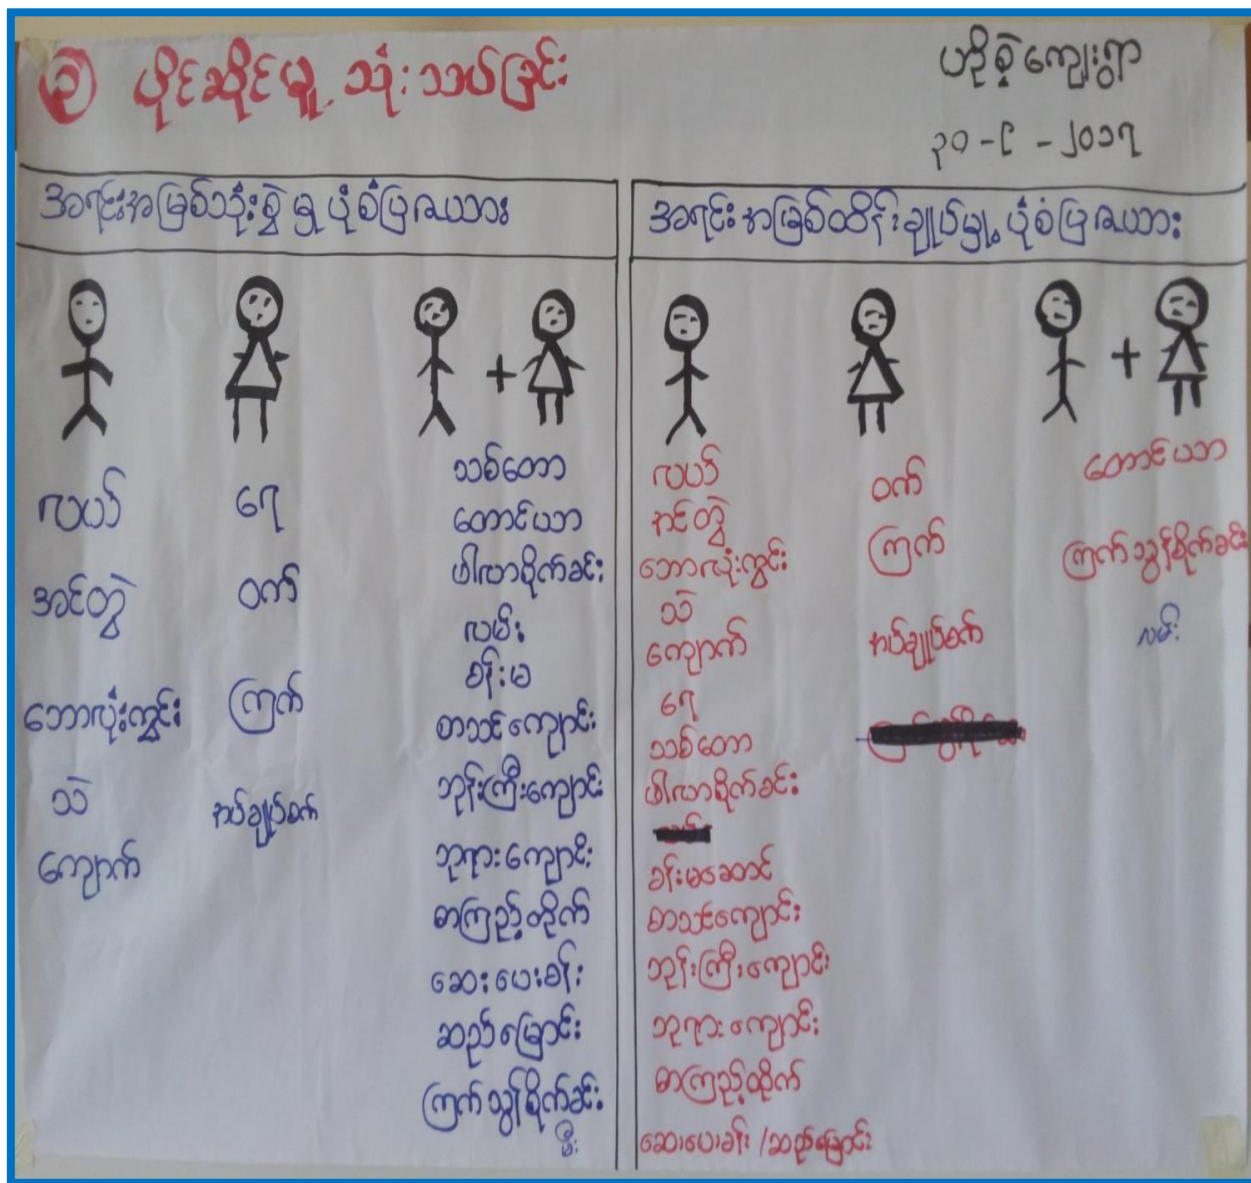 ၃ ပိုင်ဆိုင်မှု သုံးသပ်ခြင်း
ဟိုစွဲကျေးရွာ
၃၀-၉-၂၀၁၇
အရင်းအမြစ်သုံးစွဲမှု ပုံစံပြဇယား
လယ်
အင်တွဲ
ဘောလုံးကွင်း
သဲ
ကျောက်
ရေ
ဝက်
ကြက်
အပ်ချုပ်စက်
သစ်တော
တောင်ယာ
ဖါလာစိုက်ခင်း
လမ်း
ခန်းမ
စာသင်ကျောင်း
ဘုန်းကြီးကျောင်း
ဘုရားကျောင်း
စာကြည့်တိုက်
ဆေးပေးခန်း
ဆည်မြောင်း
ကြက်သွန်စိုက်ခင်း
မီး
အရင်းအမြစ်ထိန်းချုပ်မှု ပုံစံပြဇယား
လယ်
အင်တွဲ
ဘောလုံးကွင်း
သဲ
ကျောက်
ရေ
သစ်တော
ဖါလာစိုက်ခင်း
ခန်းမဆောင်
စာသင်ကျောင်း
ဘုန်းကြီးကျောင်း
ဘုရားကျောင်း
စာကြည့်ထိုက်
ဆေးပေးခန်း/ဆည်မြောင်း
ဝက်
ကြက်
အပ်ချုပ်စက်
တောင်ယာ
ကြက်သွန်စိုက်ခင်း
လမ်း